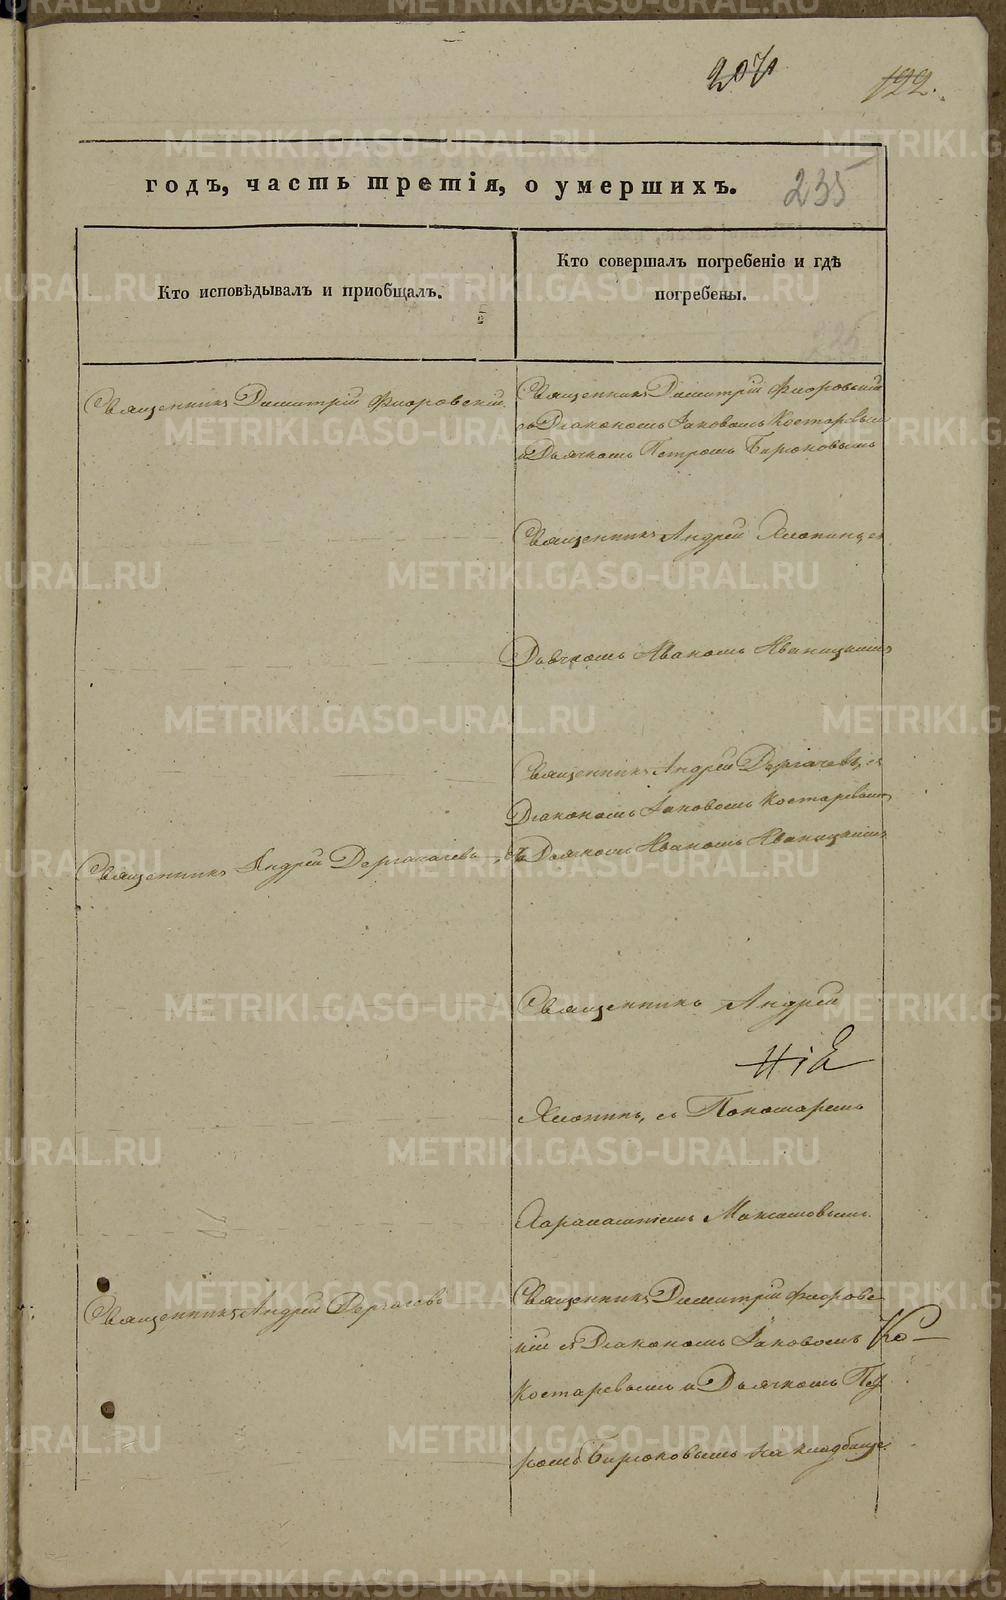 207
122.
годъ, часть третія, о умершихъ.
235
Кто исповѣдывалъ и приобщалъ.
Кто совершалъ погребеніе и гдѣ
погребены.
Священникъ Димитрій Флоровскій.
Священникъ Димитрій Флоровскій
съ Діакономъ Іаковомъ Костаревым
и Дьячкомъ Петромъ Бирюковымъ
Священникъ Андрей Хлопинъ, съ
Дьячкомъ Иваномъ Иваницкимъ
Священникъ Андрей Дергачевъ, съ
Діакономъ Іаковомъ Костаревымъ
и Дьячкомъ Иваномъ Иваницкимъ
Священникъ Андрей Дергачевъ
Священникъ Андрей
Хлопинъ, съ Пономаремъ
Харалампіемъ Максимовымъ.
Священникъ Андрей Дергачевъ
Священникъ Димитрій Флоровс
кій съ Діакономъ Іаковомъ Ко
Костаревымъ и Дьячкомъ Пет
ромъ Бирюковымъ на кладбище.
METRIKI.GASO-URAL.RU